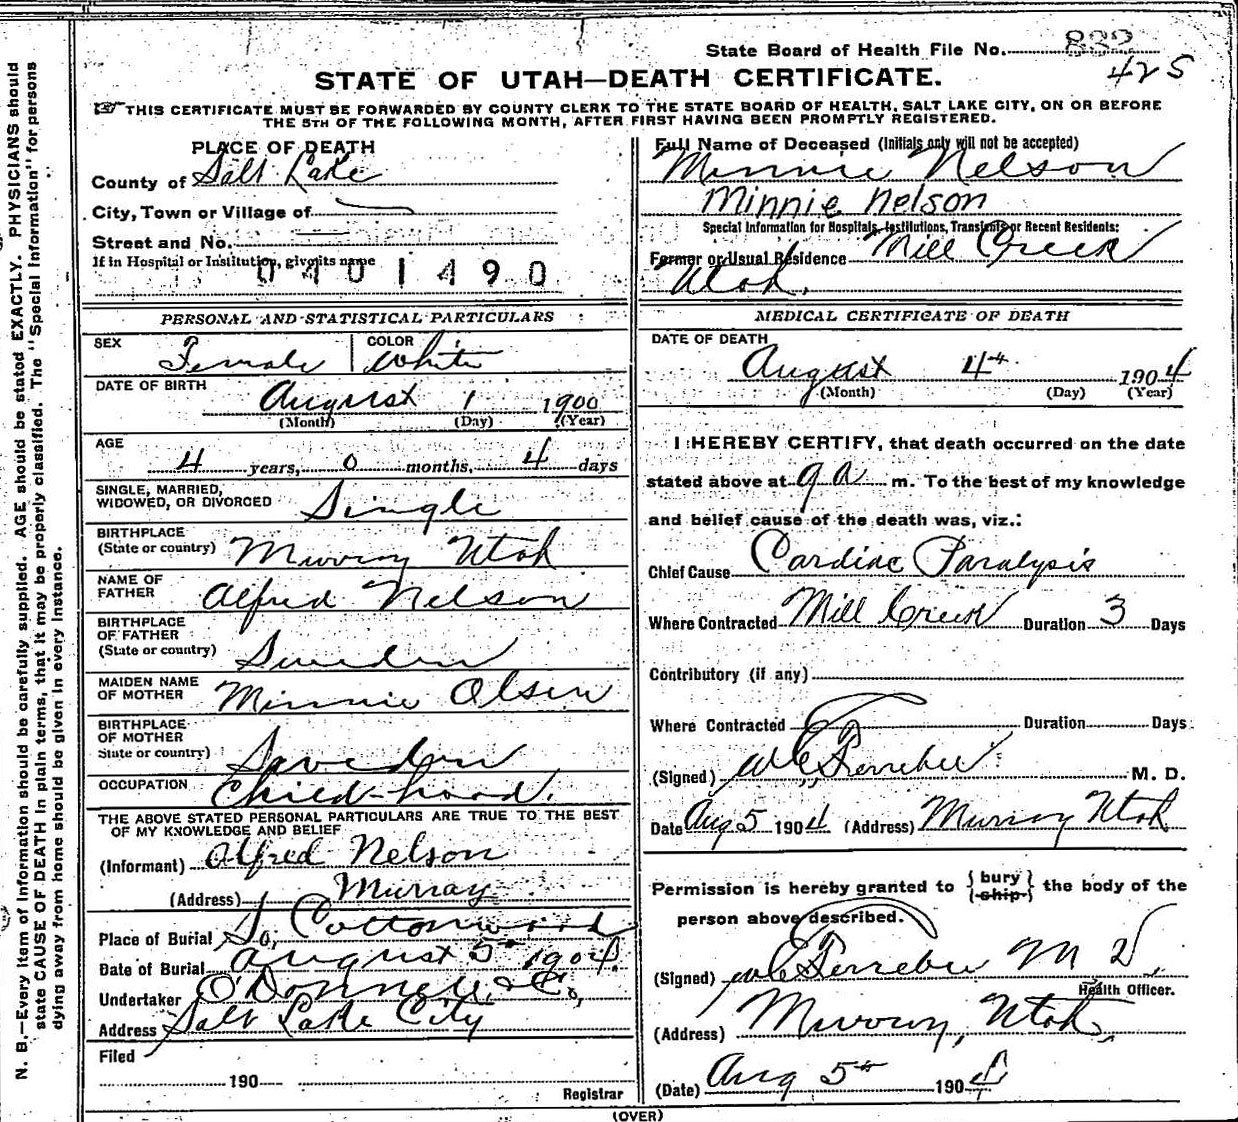 State Board of Health File No. 832
425
STATE OF UTAH—DEATH CERTIFICATE.
THIS CERTIFICATE MUST BE FORWARDED BY COUNTY CLERK TO THE STATE BOARD OF HEALTH, SALT LAKE CITY, ON OR BEFORE
THE 5TH OF THE FOLLOWING MONTH, AFTER FIRST HAVING BEEN PROMPTLY REGISTERED.
N. B.—Every item of information should be carefully supplied. AGE should be stated EXACTLY. PHYSICIANS should
state CAUSE OF DEATH in plain terms, that it may be properly classified. The "Special Information" for persons
dying away from home should be given in every instance.
PLACE OF DEATH
County of Salt Lake
City, Town or Village of
Street and No.
If in Hospital or Institution, give its name
0401490
Full Name of Deceased (Initials only will not be accepted)
Minnie Nelson
Minnie Nelson
Special Information for Hospitals, Institutions, Transients or Recent Residents:
Former or Usual Residence Mill Creek
Utah.
PERSONAL AND STATISTICAL PARTICULARS
SEX Female COLOR White
DATE OF BIRTH
August 1 1900
(Month) (Day) (Year)
AGE
4 years, 0 months, 4 days
SINGLE, MARRIED,
WIDOWED, OR DIVORCED Single
BIRTHPLACE
(State or country) Murray Utah
NAME OF
FATHER Alfred Nelson
BIRTHPLACE
OF FATHER
(State or country) Sweden
MAIDEN NAME
OF MOTHER Minnie Olsen
BIRTHPLACE
OF MOTHER
State or country) Sweden
OCCUPATION Child-hood.
THE ABOVE STATED PERSONAL PARTICULARS ARE TRUE TO THE BEST
OF MY KNOWLEDGE AND BELIEF
(Informant) Alfred Nelson
(Address) Murray
Place of Burial So. Cottonwood
Date of Burial August 5" 1904.
Undertaker O'Donnell & Co,
Address Salt Lake City
Filed
190
Registrar
MEDICAL CERTIFICATE OF DEATH
DATE OF DEATH
August 4th 1904
(Month) (Day) (Year)
I HEREBY CERTIFY, that death occurred on the date
stated above at 9 a m. To the best of my knowledge
and belief cause of the death was, viz.:
Chief Cause Cardiac Paralysis
Where Contracted Mill Creek Duration 3 Days
Contributory (if any)
Where Contracted Duration Days
(Signed) M. D.
Date Aug 5 1904 (Address) Murray Utah
Permission is hereby granted to {bury
ship} the body of the
person above described.
(Signed) M D,
Health Officer.
(Address) Murray, Utah,
(Date) Aug 5th 1904
(OVER)